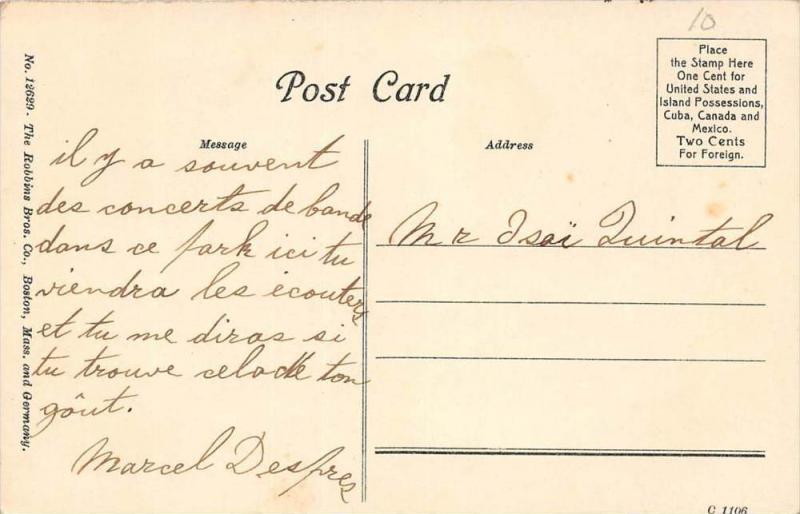 10
Place
the Stamp Here
One Cent for
United States and
Island Possessions,
Cuba, Canada and
Mexico.
Two Cents
For Foreign.
Post Card
Message
Address
il y a souvent
des concerts de bande
dans ce park ici tu
viendra les écouters
et tu me diras si
tu trouve cela de ton
goût.
Marcel Despres
Mr Isaï Quintal
No. 12629. The Robbins Bros. Co., Boston, Mass. and Germany.
C 1106